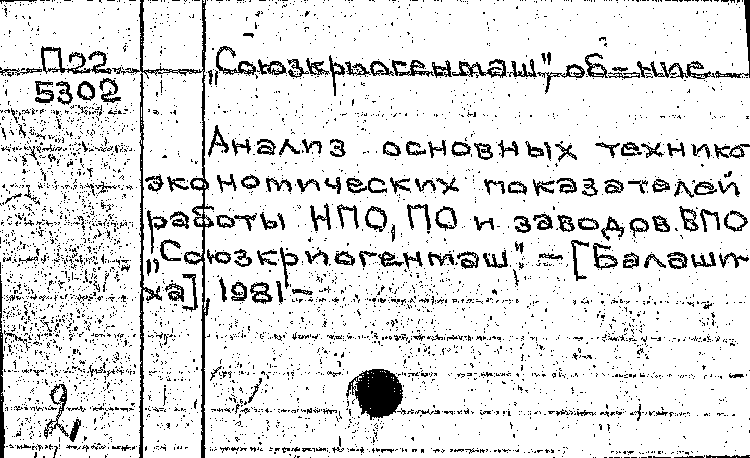 П22
5302
„Союзкриогенмаш", об-ние.
Анализ основных технико
экономических показателей
работы НПО, ПО и заводов ВПО
„Союзкриогенмаш". – [Балаши-
ха], 1981 –
2